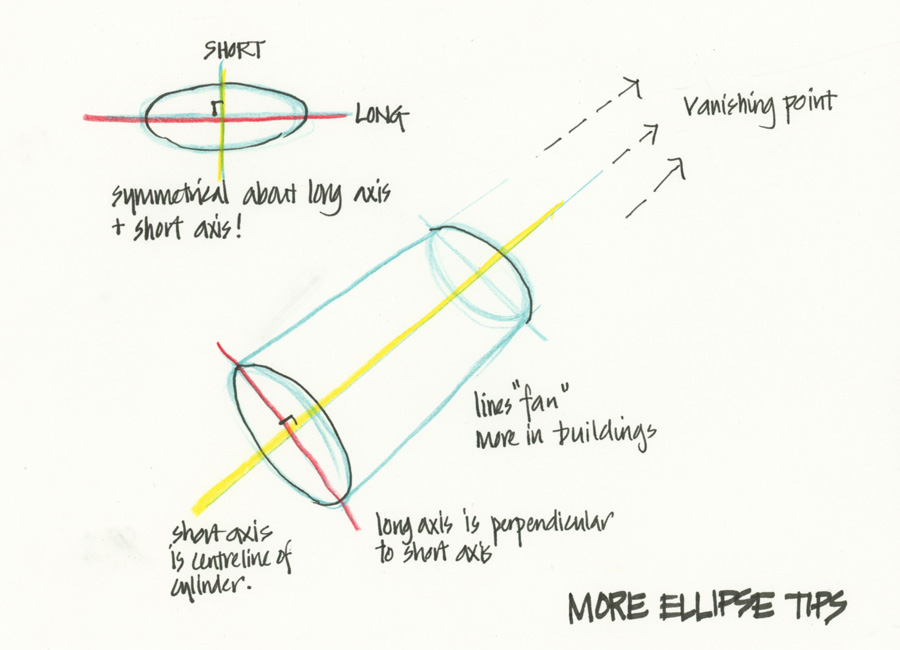 SHORT
LONG
symmetrical about long axis
+ short axis!
vanishing point
lines "fan"
more in buildings
short axis
is centreline of
cylinder.
long axis is perpendicular
to short axis
MORE ELLIPSE TIPS